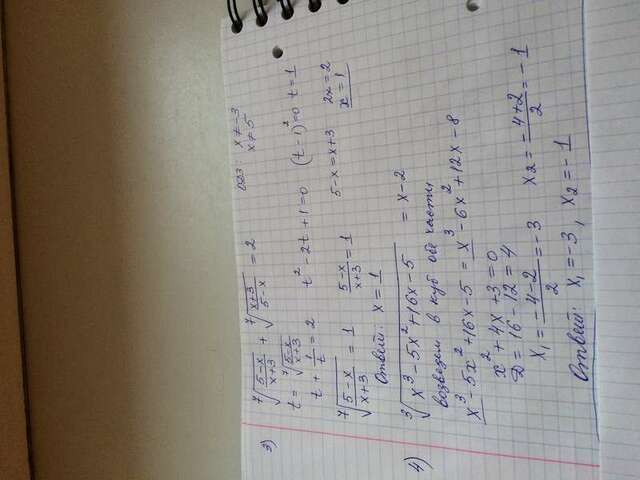 3) ⁷√((5-x)/(x+3)) + ⁷√((x+3)/(5-x)) = 2 ОДЗ: x ≠ -3
x ≠ 5
t = ⁷√((5-x)/(x+3))
t + 1/t = 2 t² - 2t + 1 = 0 (t-1)² = 0 t = 1
⁷√((5-x)/(x+3)) = 1 (5-x)/(x+3) = 1 5-x = x+3 2x = 2
x = 1
Ответ: x = 1
4) ³√(x³ - 5x² + 16x - 5) = x - 2
возведем в куб обе части
x³ - 5x² + 16x - 5 = x³ - 6x² + 12x - 8
x² + 4x + 3 = 0
D = 16 - 12 = 4
x₁ = (-4-2)/2 = -3 x₂ = (-4+2)/2 = -1
Ответ: x₁ = -3, x₂ = -1